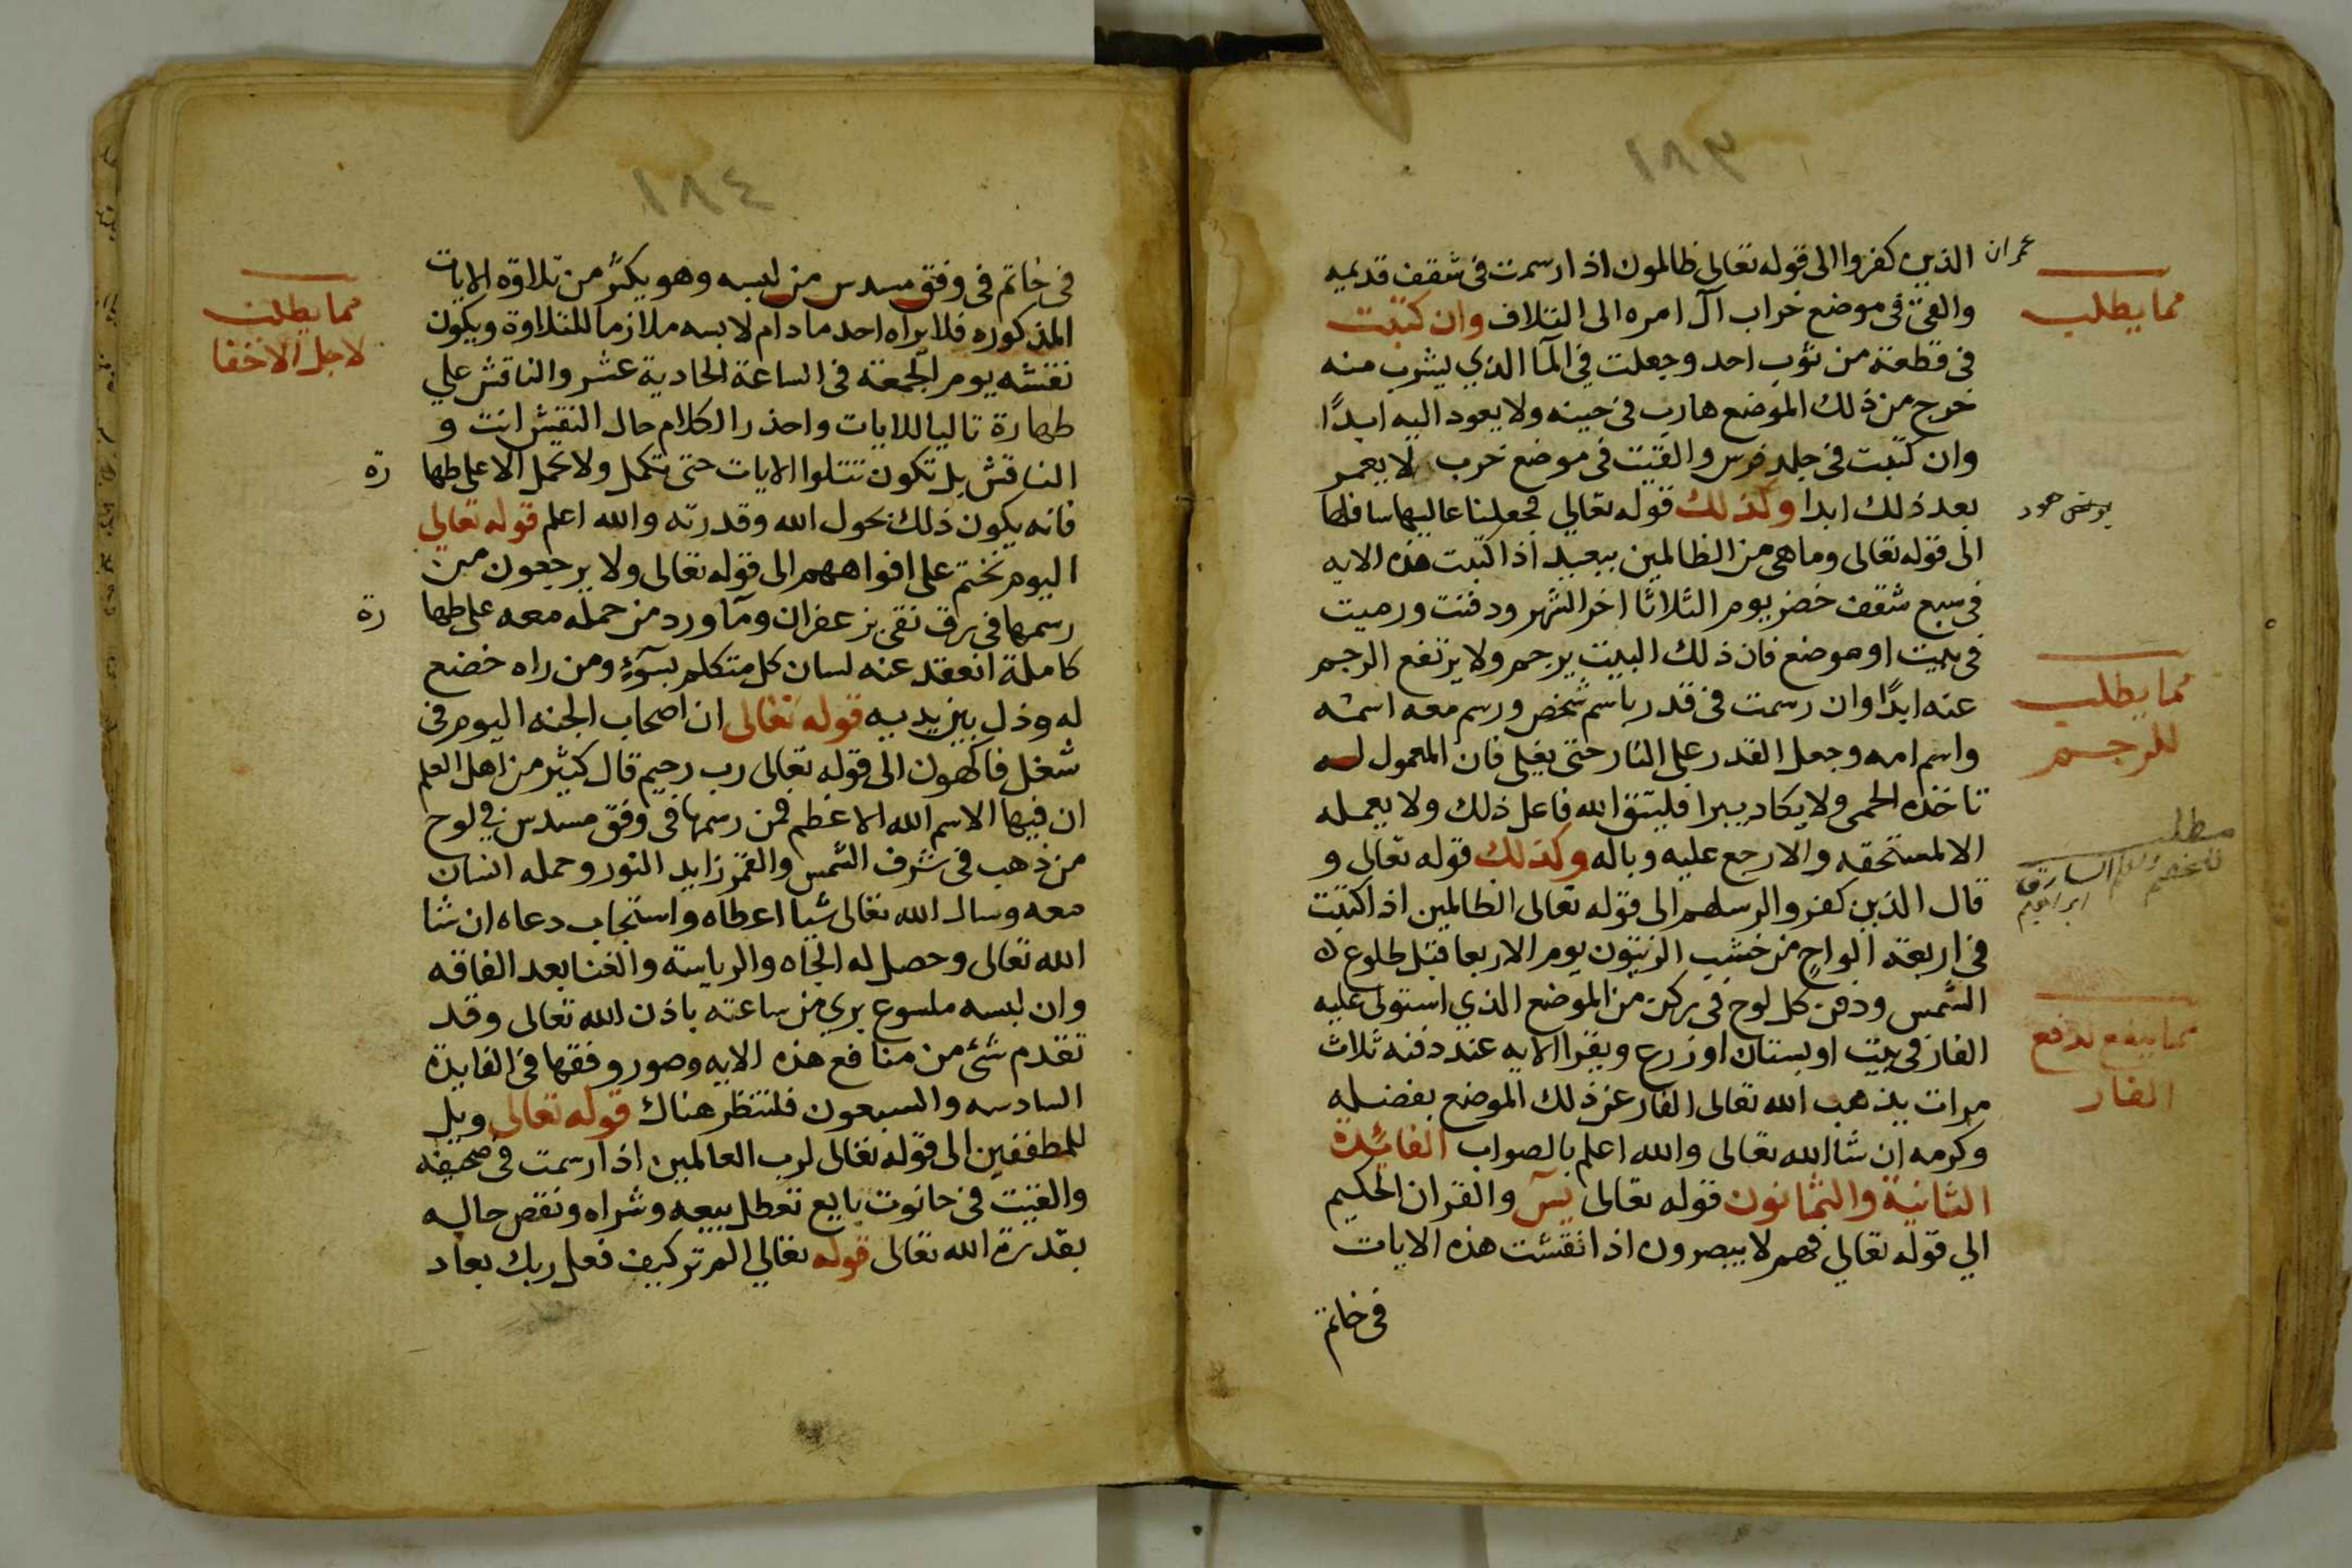 ١٨٣
عمران
الذين كفروا الى قوله تعالى ظالمون اذا رسمت فى شقف قديمه
والقى فى موضع خراب آل امره الى التلاف وان كتبت
فى قطعة من ثوب احد وجعلت في المآ الذي يشرب منه
خرج من ذلك الموضع هارب فى حينه ولا يعود اليه ابدًا
وان كتبت فى جلد فرس والقيت فى موضع خرب لا يعمر
بعد ذلك ابدا وكذلك قوله تعالي فجعلنا عاليها سافلها
الى قوله تعالى وما هى من الظالمين ببعيد اذا كتبت هذه الايه
فى سبع شقف خضر يوم الثلاثا اخر الشهر ودفنت ورميت
فى بيت او موضع فان ذلك البيت يرجم ولا يرتفع الرجم
عنه ابدًا وان رسمت فى قدر باسم شخص ورسم معه اسمه
واسم امه وجعل القدر على النار حتى يغلى فان المعمول له
تاخذه الحمى ولا يكاد يبرا فليتق الله فاعل ذلك ولا يعمله
الا لمستحقه والا رجع عليه وباله وكذلك قوله تعالى و
قال الذين كفروا لرسلهم الى قوله تعالى الظالمين اذا كتبت
فى اربعة الواح من خشب الزيتون يوم الاربعا قبل طلوع
الشمس ودفن كل لوح فى ركن من الموضع الذي استولى عليه
الفار فى بيت او بستان او زرع ويقرا الايه عند دفنه ثلاث
مرات يذهب الله تعالى الفار عن ذلك الموضع بفضله
وكرمه ان شا الله تعالى والله اعلم بالصواب الفائدة
الثانية والثمانون قوله تعالى يسٓ والقران الحكيم
الي قوله تعالي فهم لا يبصرون اذا نقشت هذه الايات
فى خاتم
مما يطلب
هود
مما يطلب
للرجم
مطلب
السارق
ابراهيم
مما ينفع لدفع
الفار
١٨٤
فى خاتم فى وفق مسدس من لبسه وهو يكثر من تلاوة الايات
المذكوره فلا يراه احد ما دام لابسه ملازما للتلاوة ويكون
نقشه يوم الجمعة فى الساعة الحادية عشر والناقش علي
طهارة تاليا للايات واحذر الكلام حال النقش انت و
الناقش بل تكون تتلوا الايات حتى تكمل ولا تحمل الا على طها رة
فانه يكون ذلك بحول الله وقدرته والله اعلم قوله تعالي
اليوم نختم على افواههم الى قوله تعالى ولا يرجعون من
رسمها فى رق نقى بزعفران ومآ ورد من حمله معه على طها رة
كاملة انعقد عنه لسان كل متكلم بسوٓءٍ ومن راه خضع
له وذل بين يديه قوله تعالى ان اصحاب الجنه اليوم فى
شغل فاكهون الى قوله تعالى رب رحيم قال كثير من اهل العلم
ان فيها الاسم الله الاعظم فمن رسمها فى وفق مسدس في لوح
من ذهب فى شرف الشمس والقمر زايد النور وحمله انسان
معه وسال الله تعالى شيا اعطاه واستجاب دعاه ان شا
الله تعالى وحصل له الجاه والرياسة والغنا بعد الفاقه
وان لبسه ملسوع بري من ساعته باذن الله تعالى وقد
تقدم شئ من منافع هذه الايه وصور وفقها فى الفايدة
السادسه والسبعون فلتنظر هناك قوله تعالى ويل
للمطففين الى قوله تعالى لرب العالمين اذا رسمت فى صحيفه
والقيت فى حانوت بايع تعطل بيعه وشراه ونقص حاله
بقدرة الله تعالى قوله تعالي الم تر كيف فعل ربك بعاد
مما يطلب
لاجل الاخفا